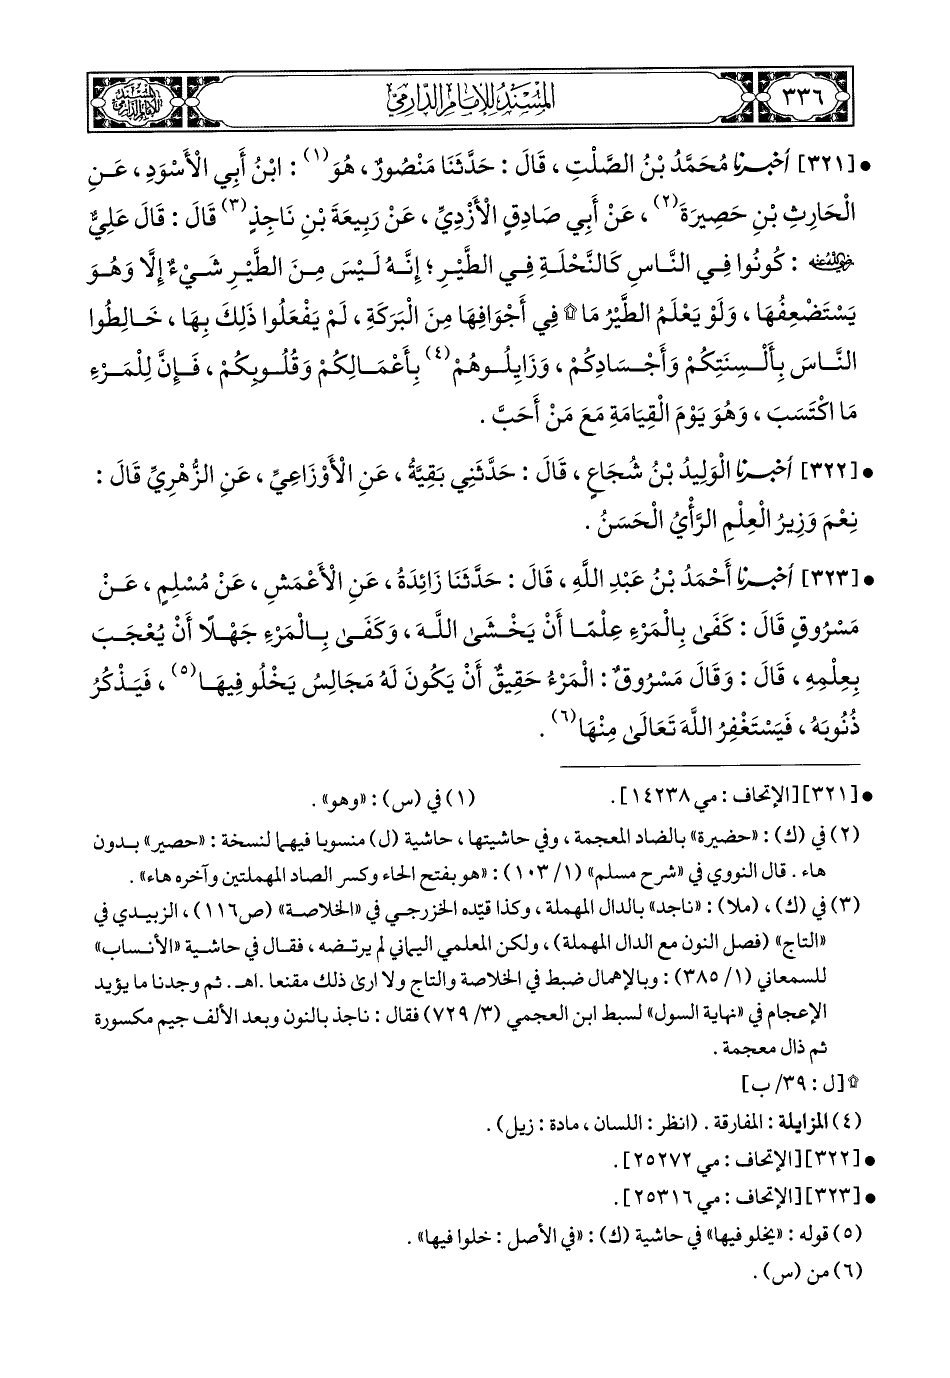 ٣٣٦
المسند للإمام الدارمي
المسند للإمام الدارمي
• [٣٢١] أَخْبَرَنَا مُحَمَّدُ بْنُ الصَّلْتِ ، قَالَ : حَدَّثَنَا مَنْصُورٌ ، هُوَ (١) : ابْنُ أَبِي الْأَسْوَدِ ، عَنِ
الْحَارِثِ بْنِ حَصِيرَةَ (٢) ، عَنْ أَبِي صَادِقٍ الْأَزْدِيِّ ، عَنْ رَبِيعَةَ بْنِ نَاجِذٍ (٣) قَالَ : قَالَ عَلِيٌّ
رضي الله عنه : كُونُوا فِي النَّاسِ كَالنَّحْلَةِ فِي الطَّيْرِ ؛ إِنَّهُ لَيْسَ مِنَ الطَّيْرِ شَيْءٌ إِلَّا وَهُوَ
يَسْتَضْعِفُهَا ، وَلَوْ يَعْلَمُ الطَّيْرُ مَا ۩ فِي أَجْوَافِهَا مِنَ الْبَرَكَةِ ، لَمْ يَفْعَلُوا ذَلِكَ بِهَا ، خَالِطُوا
النَّاسَ بِأَلْسِنَتِكُمْ وَأَجْسَادِكُمْ ، وَزَايِلُوهُمْ (٤) بِأَعْمَالِكُمْ وَقُلُوبِكُمْ ، فَإِنَّ لِلْمَرْءِ
مَا اكْتَسَبَ ، وَهُوَ يَوْمَ الْقِيَامَةِ مَعَ مَنْ أَحَبَّ .
• [٣٢٢] أَخْبَرَنَا الْوَلِيدُ بْنُ شُجَاعٍ ، قَالَ : حَدَّثَنِي بَقِيَّةُ ، عَنِ الْأَوْزَاعِيِّ ، عَنِ الزُّهْرِيِّ قَالَ :
نِعْمَ وَزِيرُ الْعِلْمِ الرَّأْيُ الْحَسَنُ .
• [٣٢٣] أَخْبَرَنَا أَحْمَدُ بْنُ عَبْدِ اللَّهِ ، قَالَ : حَدَّثَنَا زَائِدَةُ ، عَنِ الْأَعْمَشِ ، عَنْ مُسْلِمٍ ، عَنْ
مَسْرُوقٍ قَالَ : كَفَىٰ بِالْمَرْءِ عِلْمًا أَنْ يَخْشَى اللَّهَ ، وَكَفَىٰ بِالْمَرْءِ جَهْلًا أَنْ يُعْجَبَ
بِعِلْمِهِ ، قَالَ : وَقَالَ مَسْرُوقٌ : الْمَرْءُ حَقِيقٌ أَنْ يَكُونَ لَهُ مَجَالِسُ يَخْلُو فِيهَا (٥) ، فَيَذْكُرُ
ذُنُوبَهُ ، فَيَسْتَغْفِرُ اللَّهَ تَعَالَىٰ مِنْهَا (٦) .
• [٣٢١] [الإتحاف : مي ١٤٢٣٨]. (١) في (س) : «وهو» .
(٢) في (ك) : «حضيرة» بالضاد المعجمة ، وفي حاشيتها ، حاشية (ل) منسوبا فيهما لنسخة : «حصير» بدون
هاء . قال النووي في «شرح مسلم» (١/ ١٠٣) : «هو بفتح الحاء وكسر الصاد المهملتين وآخره هاء» .
(٣) في (ك) ، (ملا) : «ناجد» بالدال المهملة ، وكذا قيّده الخزرجي في «الخلاصة» (ص١١٦) ، الزبيدي في
«التاج» (فصل النون مع الدال المهملة) ، ولكن المعلمي اليماني لم يرتضه ، فقال في حاشية «الأنساب»
للسمعاني (١/ ٣٨٥) : وبالإهمال ضبط في الخلاصة والتاج ولا ارى ذلك مقنعا .اهـ. ثم وجدنا ما يؤيد
الإعجام في «نهاية السول» لسبط ابن العجمي (٣/ ٧٢٩) فقال : ناجذ بالنون وبعد الألف جيم مكسورة
ثم ذال معجمة .
۩ [ل : ٣٩/ ب]
(٤) المزايلة : المفارقة . (انظر : اللسان ، مادة : زيل) .
• [٣٢٢] [الإتحاف : مي ٢٥٢٧٢] .
• [٣٢٣] [الإتحاف : مي ٢٥٣١٦] .
(٥) قوله : «يخلو فيها» في حاشية (ك) : «في الأصل : خلوا فيها» .
(٦) من (س) .